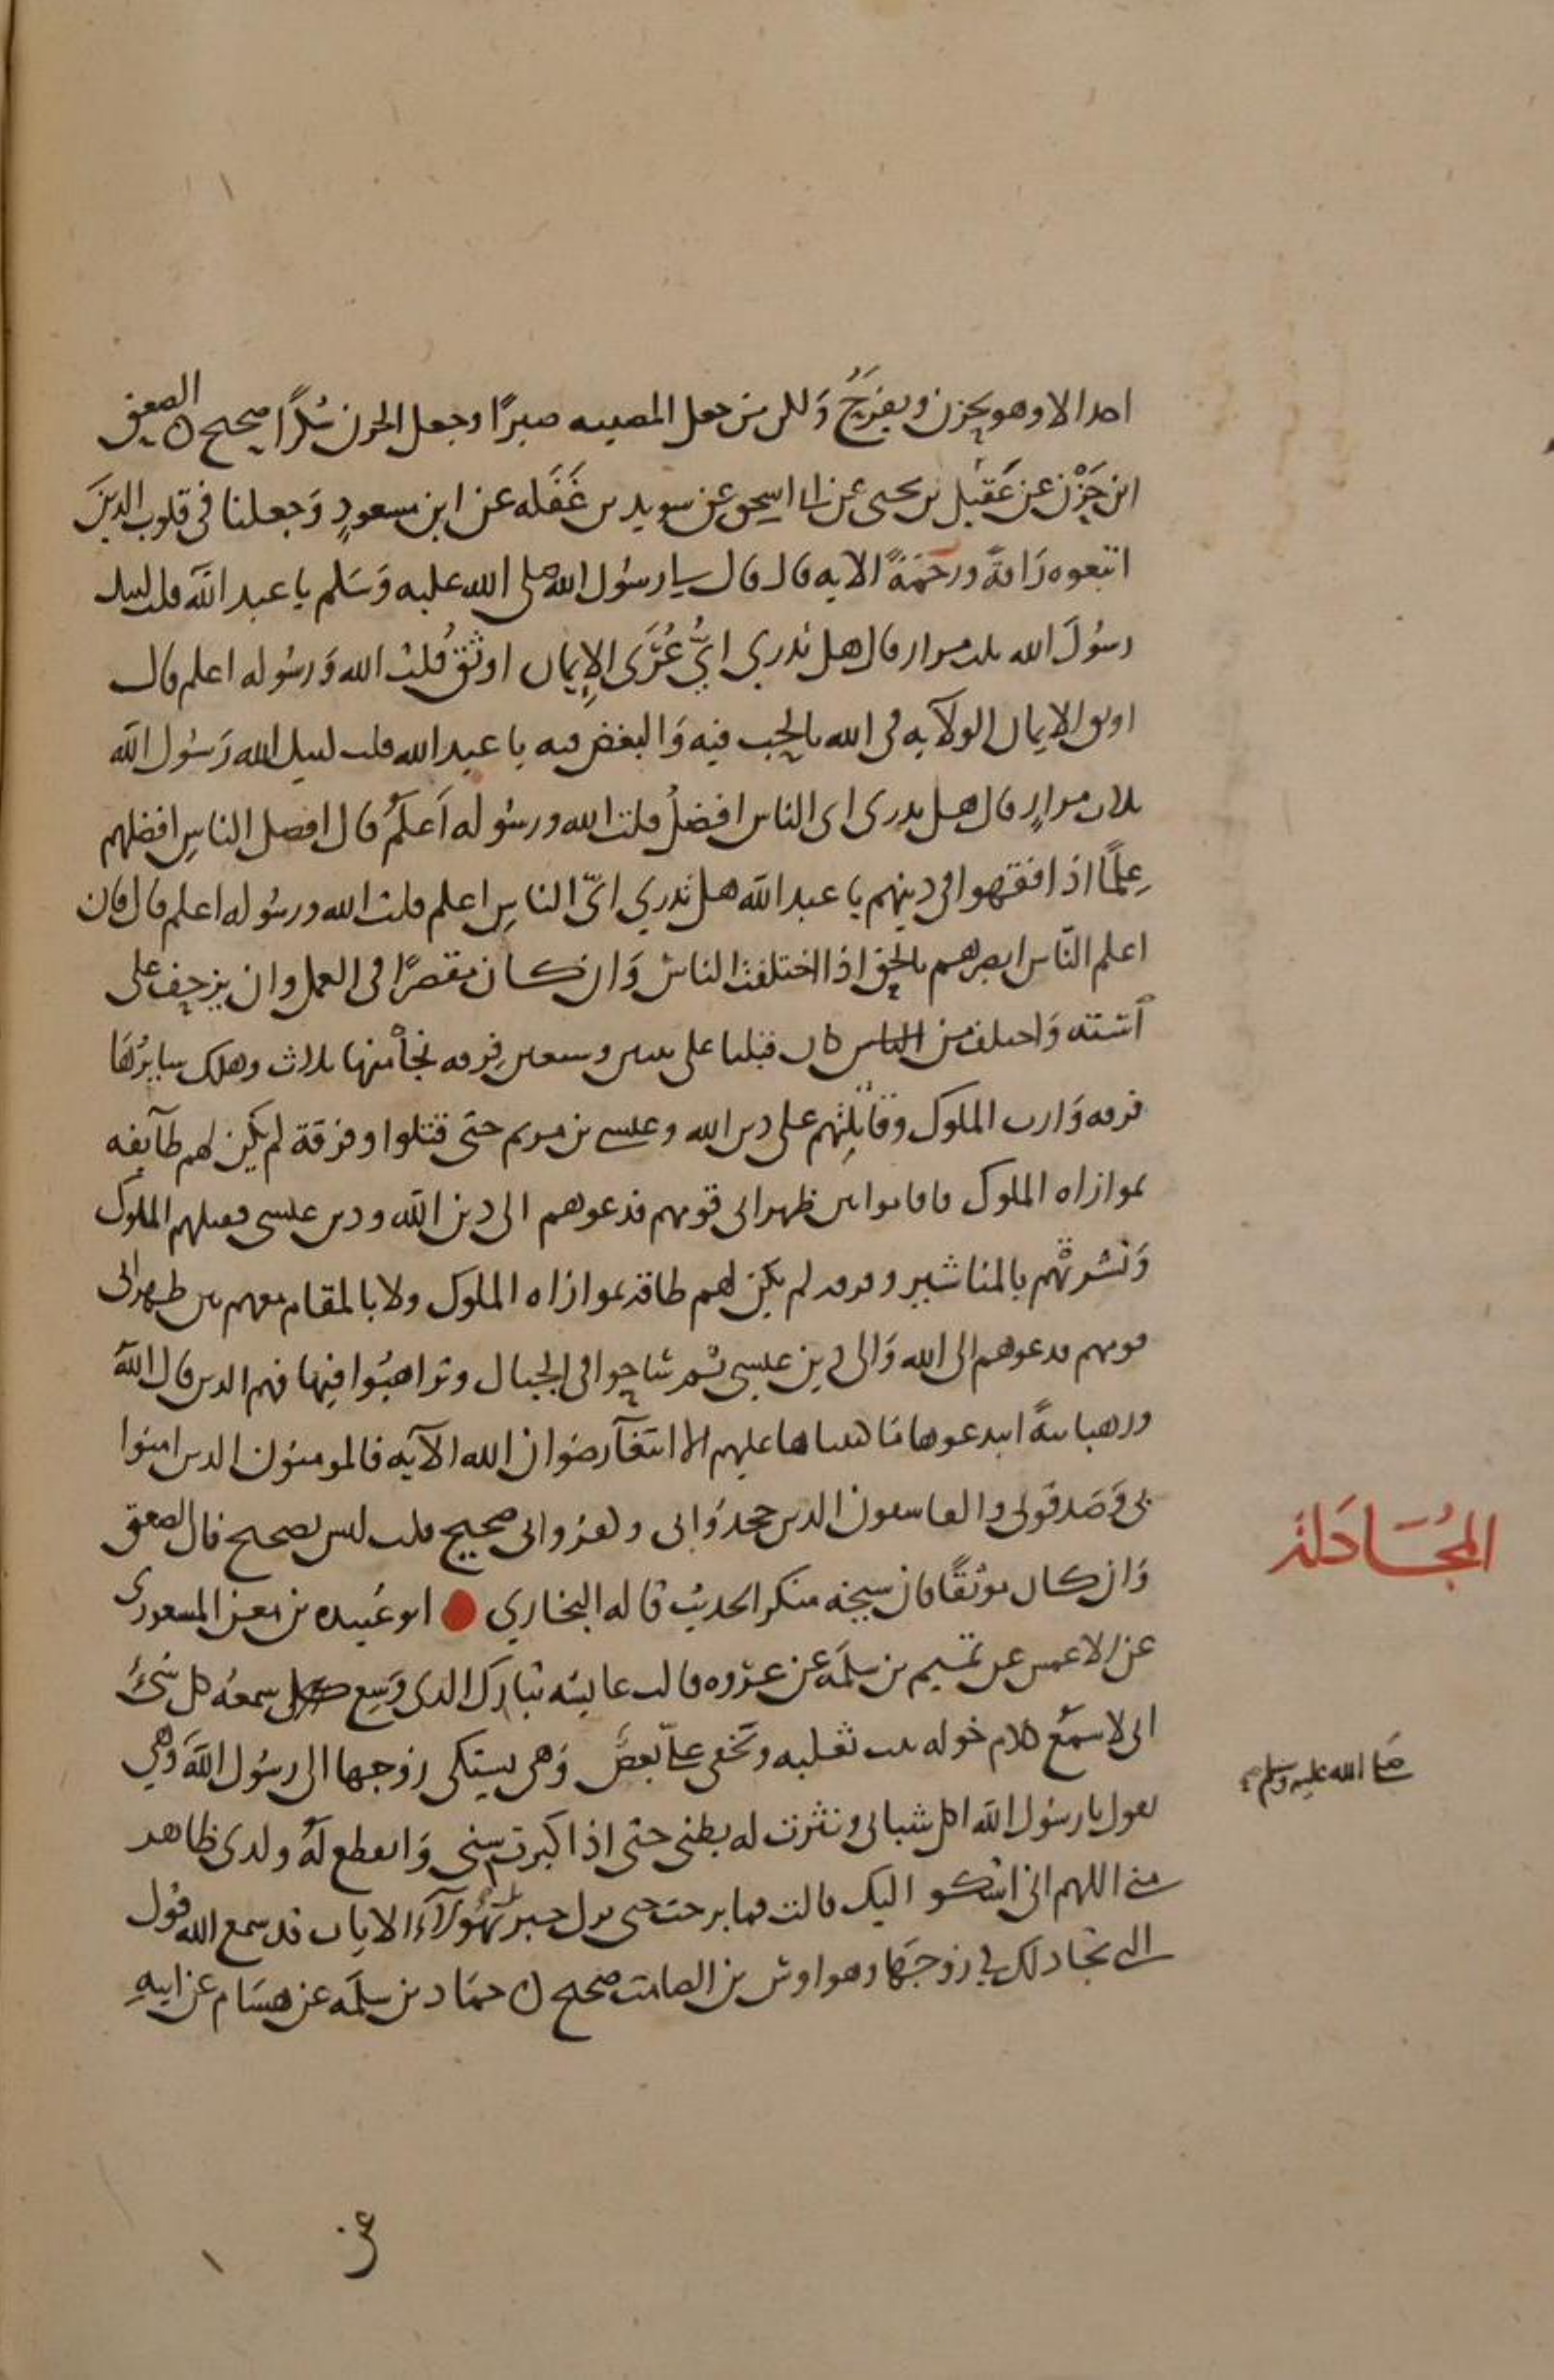 احد الا وهو يحزن ويفرح ولكن من جعل المصيبه صبرًا وجعل الحزن شكرًا صحيح ن الصعق
ابن حَزْن عن عقيل بن يحيى عن ابي اسحق عن سويد بن غَفَله عن ابن مسعودٍ وَجعلنا في قلوب الذينَ
اتبعوه رَافةً ورحمَةً الايه قال قال لي رسُول الله صلى الله عليه وَسَلم يا عبد الله قلت لبيك
رسُولَ الله ثلث مرار قال هل تدري ايُّ عُرَى الإيمان اوثق قُلت الله وَرسُوله اعلم قال
اوثق الايمان الولآيه في الله بالحب فيه وَالبغض فيه يا عبد الله قلت لبيك الله رَسُول الله
ثلاث مرارٍ قال هل تدرى اى الناس افضلُ قلت الله ورسُوله اَعلمُ قال افضل الناسِ افضلهم
عِلمًا اذا فقهوا في دينهم يا عبد الله هل تدري ايّ الناسِ اعلم قلت الله ورسُوله اعلم قال فان
اعلم النّاس ابصرهم بالحق اذا اختلفت الناسُ وَان كان مقصرًا في العمل وان يزحف على
آسته وَاختلف من الناس كان قبلنا على ثنتين وسبعين فِرقه نجا منها ثلاث وهلك سايرُهَا
فرقه وَازت الملوك وقاتلتهم على دين الله وعيسى بن مريم حتى قتلوا وفرقة لم يكن لهم طآيفه
بموازاه الملوك فاقاموا بين ظهرانى قومهم فدعوهم الى دين الله ودين عيسى فقتلهم الملوك
وَنشرتهُم بالمناشير وفرقه لم يكن لهم طاقة بموازاه الملوك ولا بالمقام معهم بين ظهرانى
قومهم فدعوهم الى الله وَالى دين عيسى ثم ساحوا فى الجبال وتراهبُوا فيها فهم الذين قال اللهُ
ورهبانيةً ابتدعوها مَا كتبناها عليهم الا ابتغآ رضوان الله الآيه فالمومنون الذين امنوا
بى وَصَدقونى والفاسقون الذين جحدوَا بى وكفروا بى صحيح قلت ليس بصحيح فان الصعق
وَان كان موثقًا فان شيخه منكر الحديث قاله البخاري ابو عُبيده بن معن المسعودى
عن الاعمش عن تميم بن سلمَه عن عروه قالت عايشه تبارك الذى وَسِع سمعهُ كل شئ
انى لاسمَع كلام خوله بنت ثعلبه وتخفى علىّ بعضَه وَهى تشتكى زوجها الى رسُول الله وَهي
تقول يا رسُول الله اكل شبابى ونثرت له بطنى حتى اذا كبرت سنى وَانقطع لهُ ولدى ظاهر
منى اللهم انى اشكو اليك قالت فما برحت حتى نزل جبريل بهؤلآء الايات قد سمع الله قول
التى تجادلك في زوجَها وهو اوس بن الصامت صحيح ن حمَاد بن سلمَه عن هشَام عن ابيهِ
المُجَادَلة
صَلى الله عليه وسلم